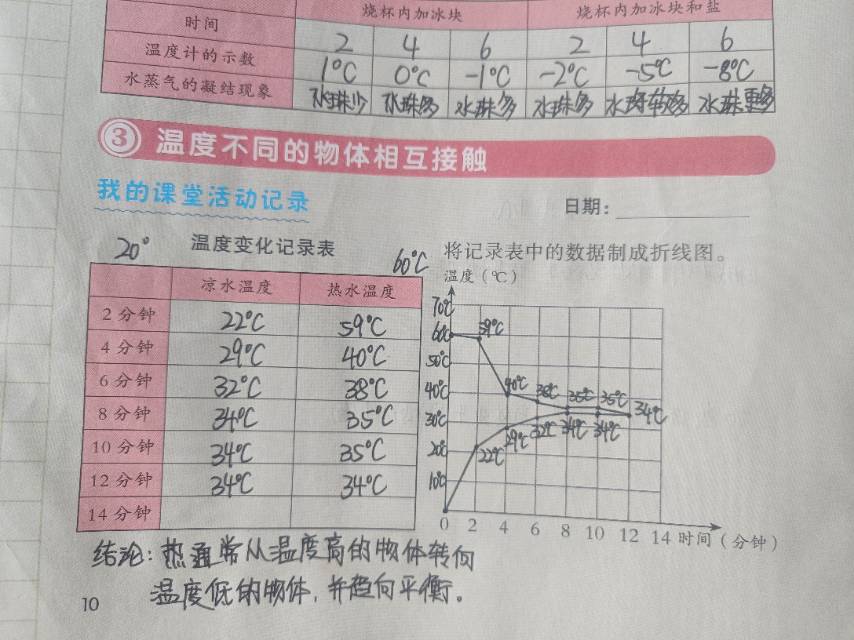 烧杯内加冰块 烧杯内加冰块和盐
时间 2 4 6 2 4 6
温度计的示数 1℃ 0℃ -1℃ -2℃ -5℃ -8℃
水蒸气的凝结现象 水珠少 水珠多 水珠多 水珠多 水珠较多 水珠更多
③ 温度不同的物体相互接触
我的课堂活动记录
日期:
20° 温度变化记录表 60℃
凉水温度 热水温度
2分钟 22℃ 59℃
4分钟 29℃ 40℃
6分钟 32℃ 38℃
8分钟 34℃ 35℃
10分钟 34℃ 35℃
12分钟 34℃ 34℃
14分钟
将记录表中的数据制成折线图。
温度(℃)
70℃
60℃ 59℃
50℃
40℃ 40℃ 38℃ 35℃ 35℃ 34℃
30℃ 29℃ 32℃ 34℃ 34℃
20℃ 22℃
10℃
0 2 4 6 8 10 12 14 时间(分钟)
结论:热通常从温度高的物体转向
温度低的物体,并趋向平衡。
10